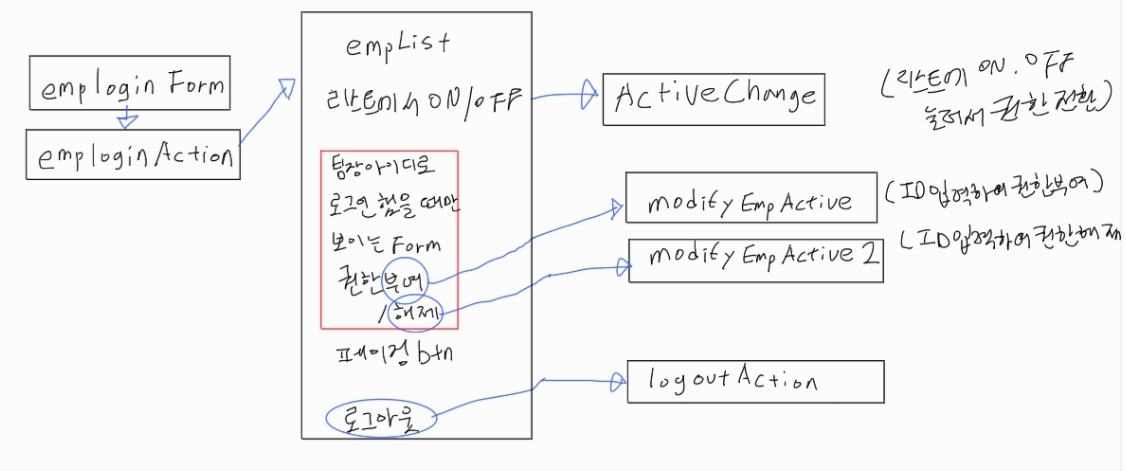 emplogin Form
emplogin Action
empList
리스트에서 ON/OFF
팀장아이디로
로그인 했을 때만
보이는 Form
권한부여
/해제
페이징 btn
로그아웃
ActiveChange
(리스트에 ON.OFF
눌러서 권한전환)
modify Emp Active
(ID입력하여 권한부여)
modify Emp Active 2
(ID입력하여 권한해제
logout Action